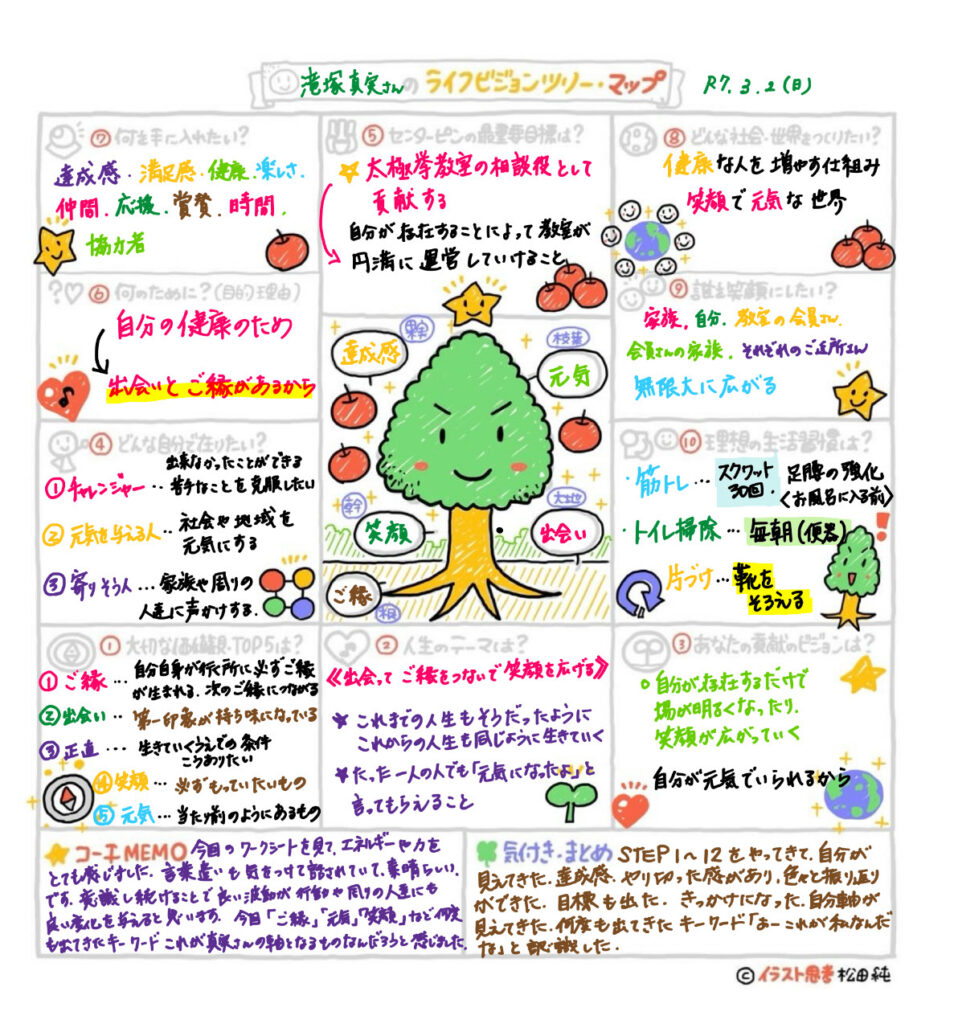 滝塚真実さんの ライフビジョンツリー・マップ
R7.3.2(日)
⑦ 何を手に入れたい?
達成感・満足感・健康・楽しさ
仲間・応援・賞賛・時間・
協力者
⑤ センターピンの最重要目標は?
太極拳教室の相談役として
貢献する
自分が存在することによって教室が
円満に運営していけること
⑧ どんな社会・世界をつくりたい?
健康な人を増やす仕組み
笑顔で元気な世界
⑥ 何のために?(目的・理由)
自分の健康のため
出会いとご縁があるから
⑨ 誰を笑顔にしたい?
家族、自分、教室の会員さん、
会員さんの家族、それぞれのご近所さん
無限大に広がる
果実
達成感
枝葉
元気
幹
笑顔
大地
出会い
ご縁
根
④ どんな自分で在りたい?
①チャレンジャー…出来なかったことができる
苦手なことを克服したい
②元気を与える人…社会や地域を
元気にする
③寄りそう人…家族や周りの
人達に声かけする.
⑩ 理想の生活習慣は?
・筋トレ…スクワット
30回・足腰の強化
<お風呂に入る前>
・トイレ掃除…毎朝(便器)
・片づけ…靴を
そろえる
① 大切な価値観・TOP5は?
①ご縁…自分自身が行く所に必ずご縁
が生まれる.次のご縁につながる
②出会い…第一印象が持ち味になっている
③正直…生きていくうえでの条件
こうありたい
④笑顔 必ずもっていたいもの
⑤元気…当たり前のようにあるもの
② 人生のテーマは?
《出会って ご縁をつないで 笑顔を広げる》
★これまでの人生もそうだったように
これからの人生も同じように生きていく
★たった一人の人でも「元気になったよ」と
言ってもらえること
③ あなたの貢献のビジョンは?
○自分が存在するだけで
場が明るくなったり、
笑顔が広がっていく
自分が元気でいられるから
コーチMEMO 今日のワークシートを見て、エネルギーや力を
とても感じました.言葉遣いも気をつけて話されていて、素晴らしい
です.意識し続けることで良い波動が行動や周りの人達にも
良い変化を与えると思います.今日「ご縁」「元気」「笑顔」など何度
も出てきたキーワードこれが真実さんの軸となるものなんだろうと感じました.
気付き・まとめ STEP1〜12をやってきて、自分が
見えてきた.達成感、やり切った感があり、色々と振り返り
ができた.目標も出た.きっかけになった.自分軸が
見えてきた.何度も出てきたキーワード「あーこれが私なんだ
な」と認識した.
©イラスト思考 松田純